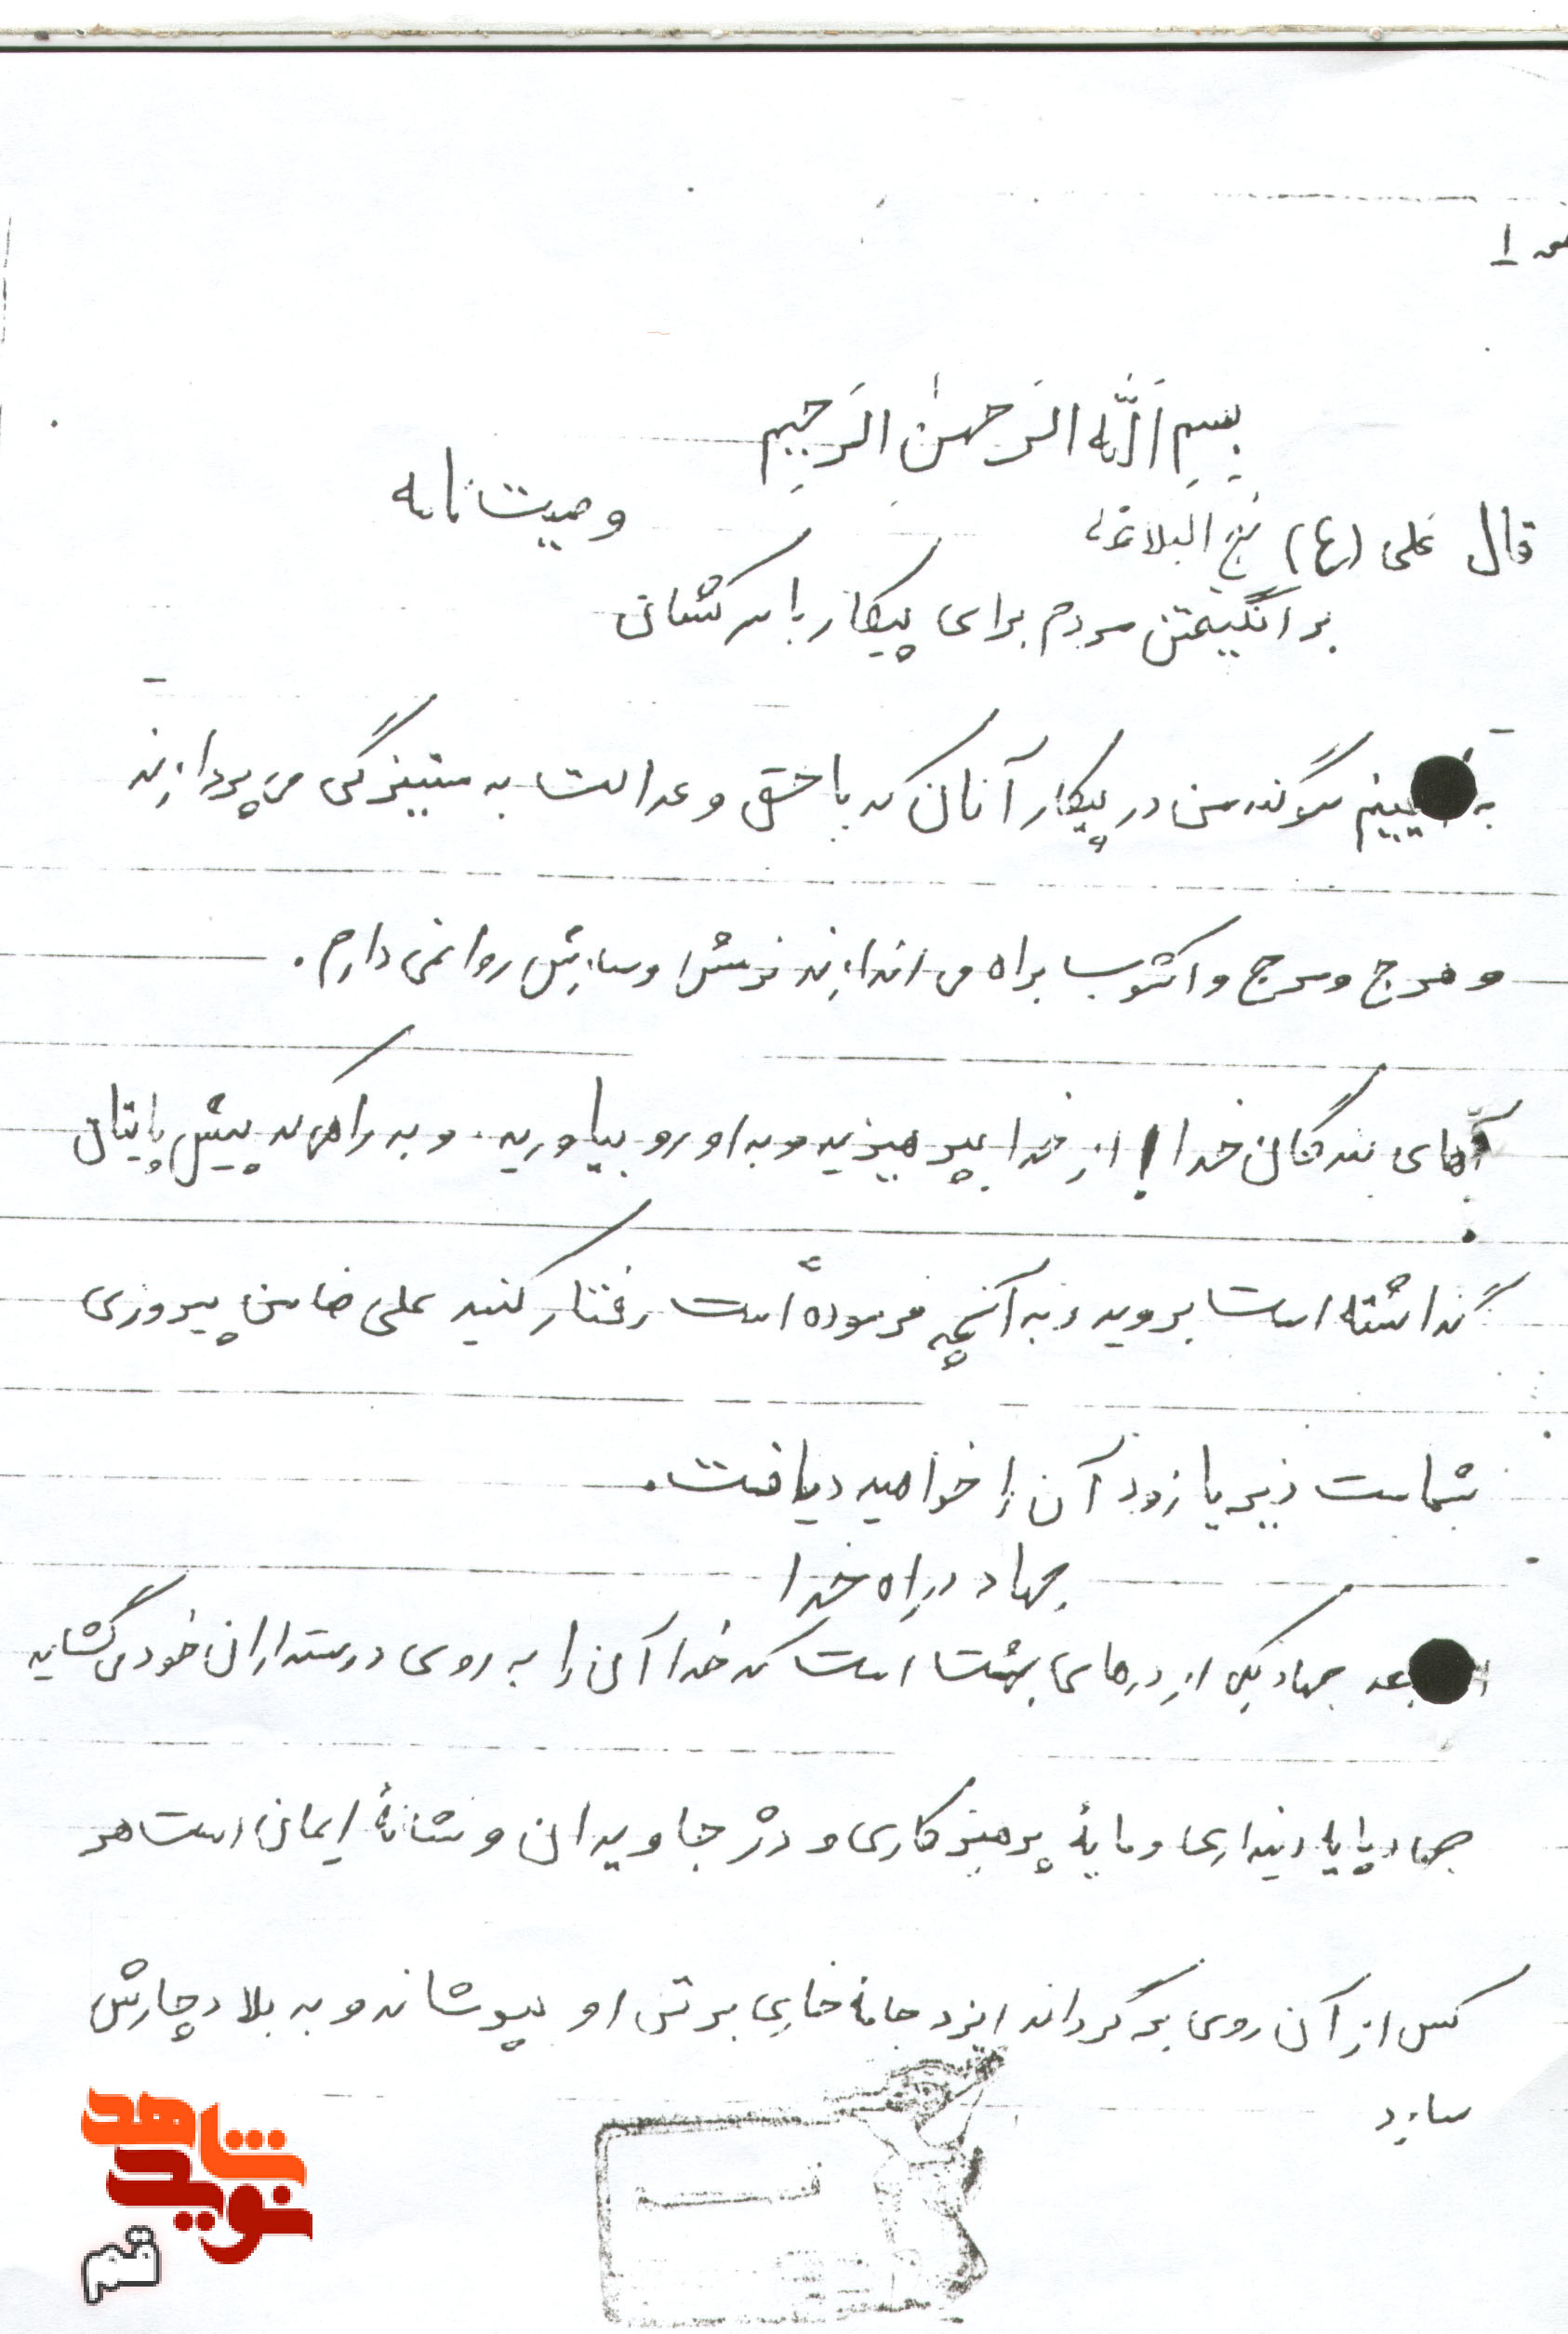 ۱
بِسمِ اَللّه الرَحمنِ الرَحیمِ
وصیت نامه
قال علی (ع) نهج البلاغه
برانگیختن مردم برای پیکار با سرکشان
سوگند من در پیکار آنان که با حق و عدالت به ستیزگی می پردازند
و هرج و مرج و آشوب براه می اندازند نرمش و سازش روا نمی دارم.
آهای بندگان خدا! از خدا بپرهیزید و به او رو بیاورید. و به راهی که پیش پایتان
گذاشته است بروید و به آنچه فرموده است رفتار کنید علی ضامن پیروزی
شماست دیر یا زود آن را خواهید دریافت.
جهاد در راه خدا
بعد جهاد یکی از درهای بهشت است که خدا آن را به روی دوستداران خود می گشاید
جهاد پایه دینداری و مایهٔ پرهیزکاری و دژ جاویدان و نشانهٔ ایمان است هر
کس از آن روی برگرداند ایزد جامهٔ خاری بر تن او بپوشاند و به بلا دچارش
سازد
شاهد
نوید
قم